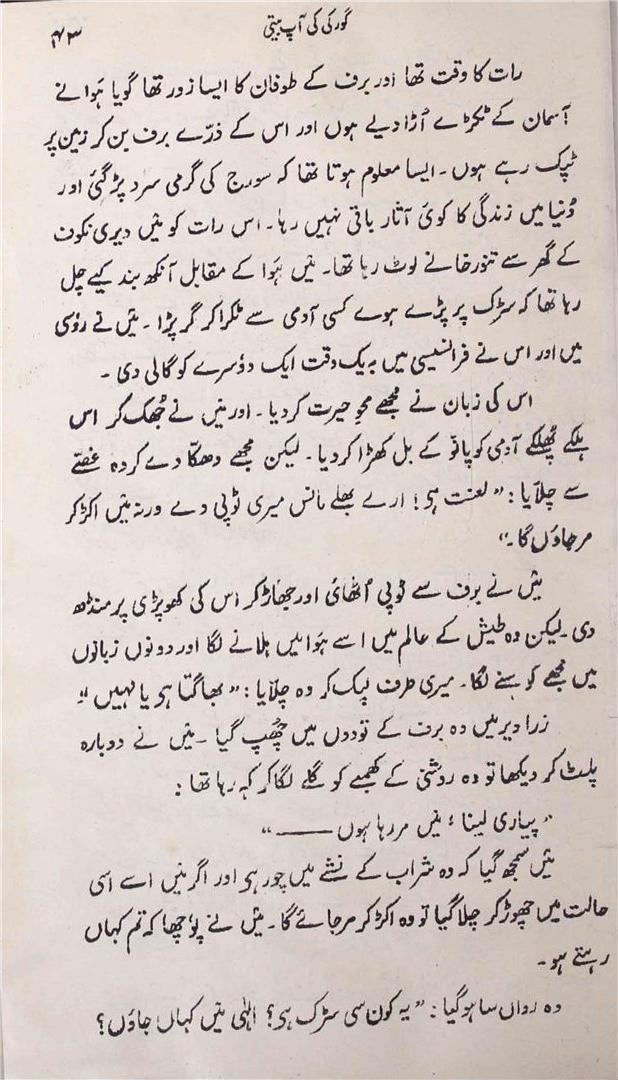 گورکی کی آپ بیتی ۴۳
رات کا وقت تھا اور برف کے طوفان کا ایسا زور تھا گویا ہَوا نے
آسمان کے ٹکڑے اُڑا دیے ہوں اور اس کے ذرّے برف بن کر زمین پر
ٹپک رہے ہوں۔ ایسا معلوم ہوتا تھا کہ سورج کی گرمی سرد پڑ گئی اور
دُنیا میں زندگی کا کوئ آثار باقی نہیں رہا۔ اس رات کو مَیں دیری نکوف
کے گھر سے تنورخانے لوٹ رہا تھا۔ مَیں ہَوا کے مقابل آنکھ بند کیے چل
رہا تھا کہ سڑک پر پڑے ہوے کسی آدمی سے ٹکرا کر گر پڑا۔ مَیں نے روٗسی
میں اور اس نے فرانسیسی میں بہ یک وقت ایک دوٗسرے کو گالی دی۔
اس کی زبان نے مجھے محوِ حیرت کر دیا۔ اور مَیں نے جُھک کر اس
ہلکے پُھلکے آدمی کو پانو کے بل کھڑا کر دیا۔ لیکن مجھے دھکّا دے کر وہ غصّے
سے چلّایا: ”لعنت ہی! ارے بھلے مانس میری ٹوپی دے ورنہ مَیں اکڑ کر
مرجاوٗں گا۔“
مَیں نے برف سے ٹوپی اُٹھائ اور جھاڑ کر اس کی کھوپڑی پر منڈھ
دی۔ لیکن وہ طیش کے عالم میں اسے ہَوا میں ہلانے لگا اور دونوں زبانوں
میں مجھے کوسنے لگا۔ میری طرف لپک کر وہ چلّایا: ”بھاگتا ہی یا نہیں“۔
زرا دیر میں وہ برف کے تودوں میں چُھپ گیا۔ مَیں نے دوبارہ
پلٹ کر دیکھا تو وہ روشنی کے کھمبے کو گلے لگا کر کہہ رہا تھا:
”پیاری لینا! مَیں مر رہا ہوں ——“
مَیں سمجھ گیا کہ وہ شراب کے نشے میں چور ہی اور اگر مَیں اسے اسی
حالت میں چھوڑ کر چلا گیا تو وہ اکڑ کر مر جائے گا۔ مَیں نے پوٗچھا کہ تم کہاں
رہتے ہو۔
وہ رواں سا ہو گیا: ”یہ کون سی سڑک ہی؟ الٰہی مَیں کہاں جاوٗں؟